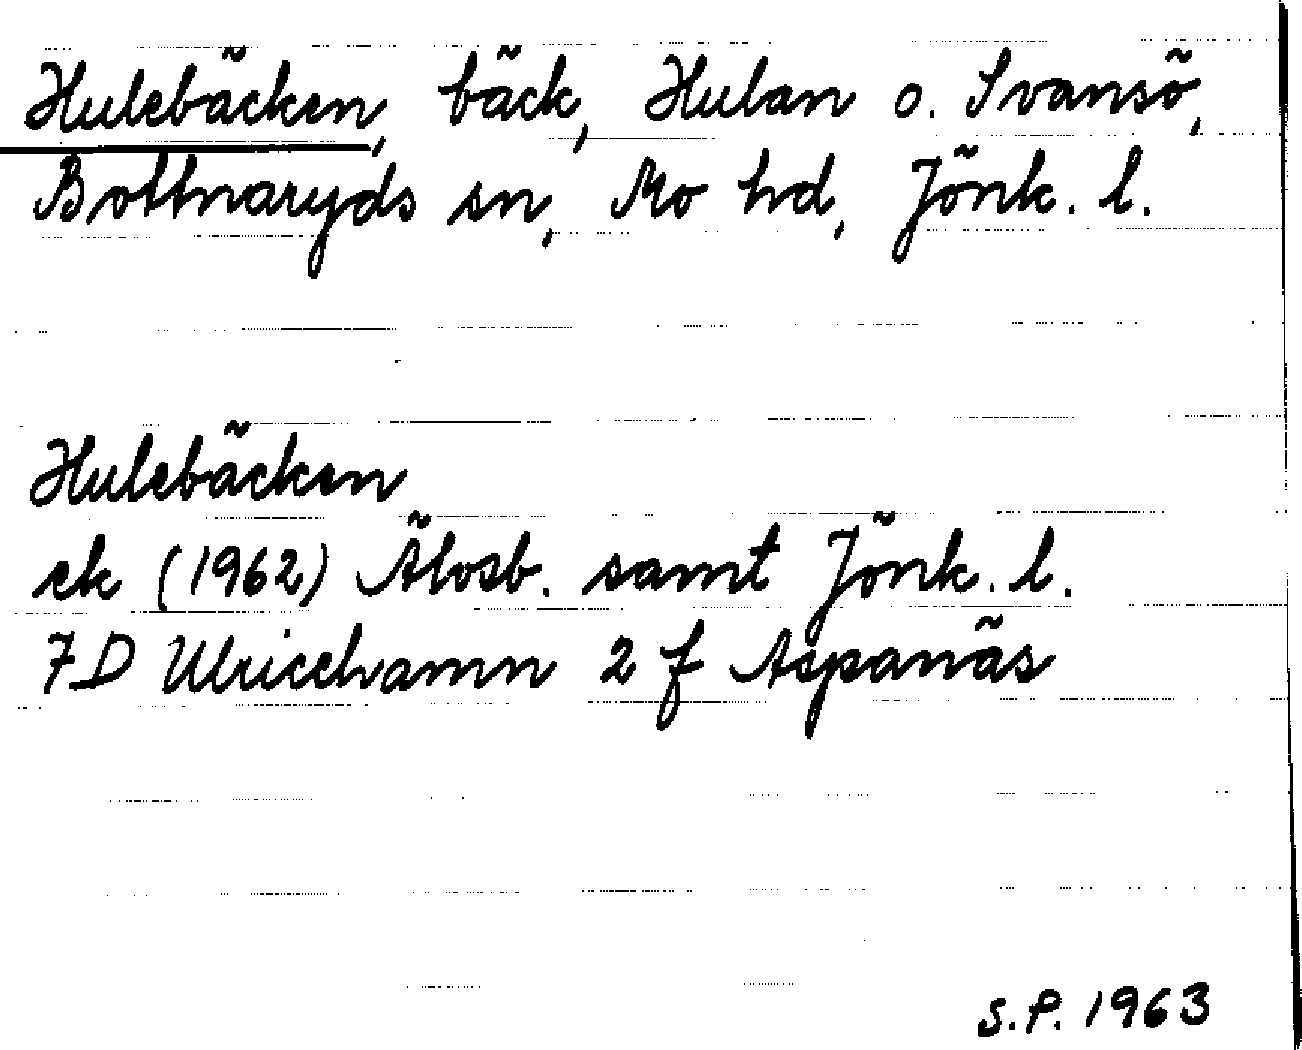 Hulebäcken, bäck, Hulan o. Svansö,
Bottnaryds sn, Mo hd, Jönk. l.
Hulebäcken
ek (1962) Älvsb. samt Jönk. l.
7D Ulricehamn 2 f Aspanäs
S.P. 1963